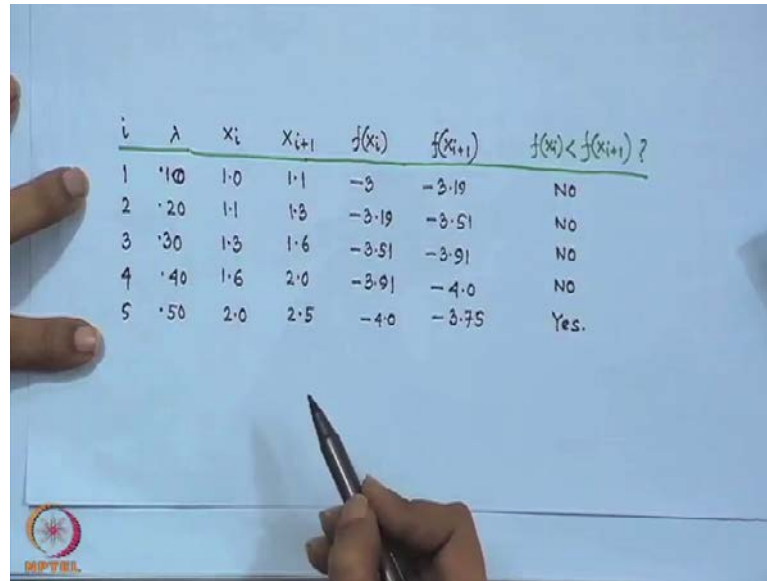 i λ xi xi+1 f(xi) f(xi+1) f(xi) < f(xi+1) ?
1 ·10 1·0 1·1 -3 -3·19 NO
2 ·20 1·1 1·3 -3·19 -3·51 NO
3 ·30 1·3 1·6 -3·51 -3·91 NO
4 ·40 1·6 2·0 -3·91 -4·0 NO
5 ·50 2·0 2·5 -4·0 -3·75 Yes.
NPTEL